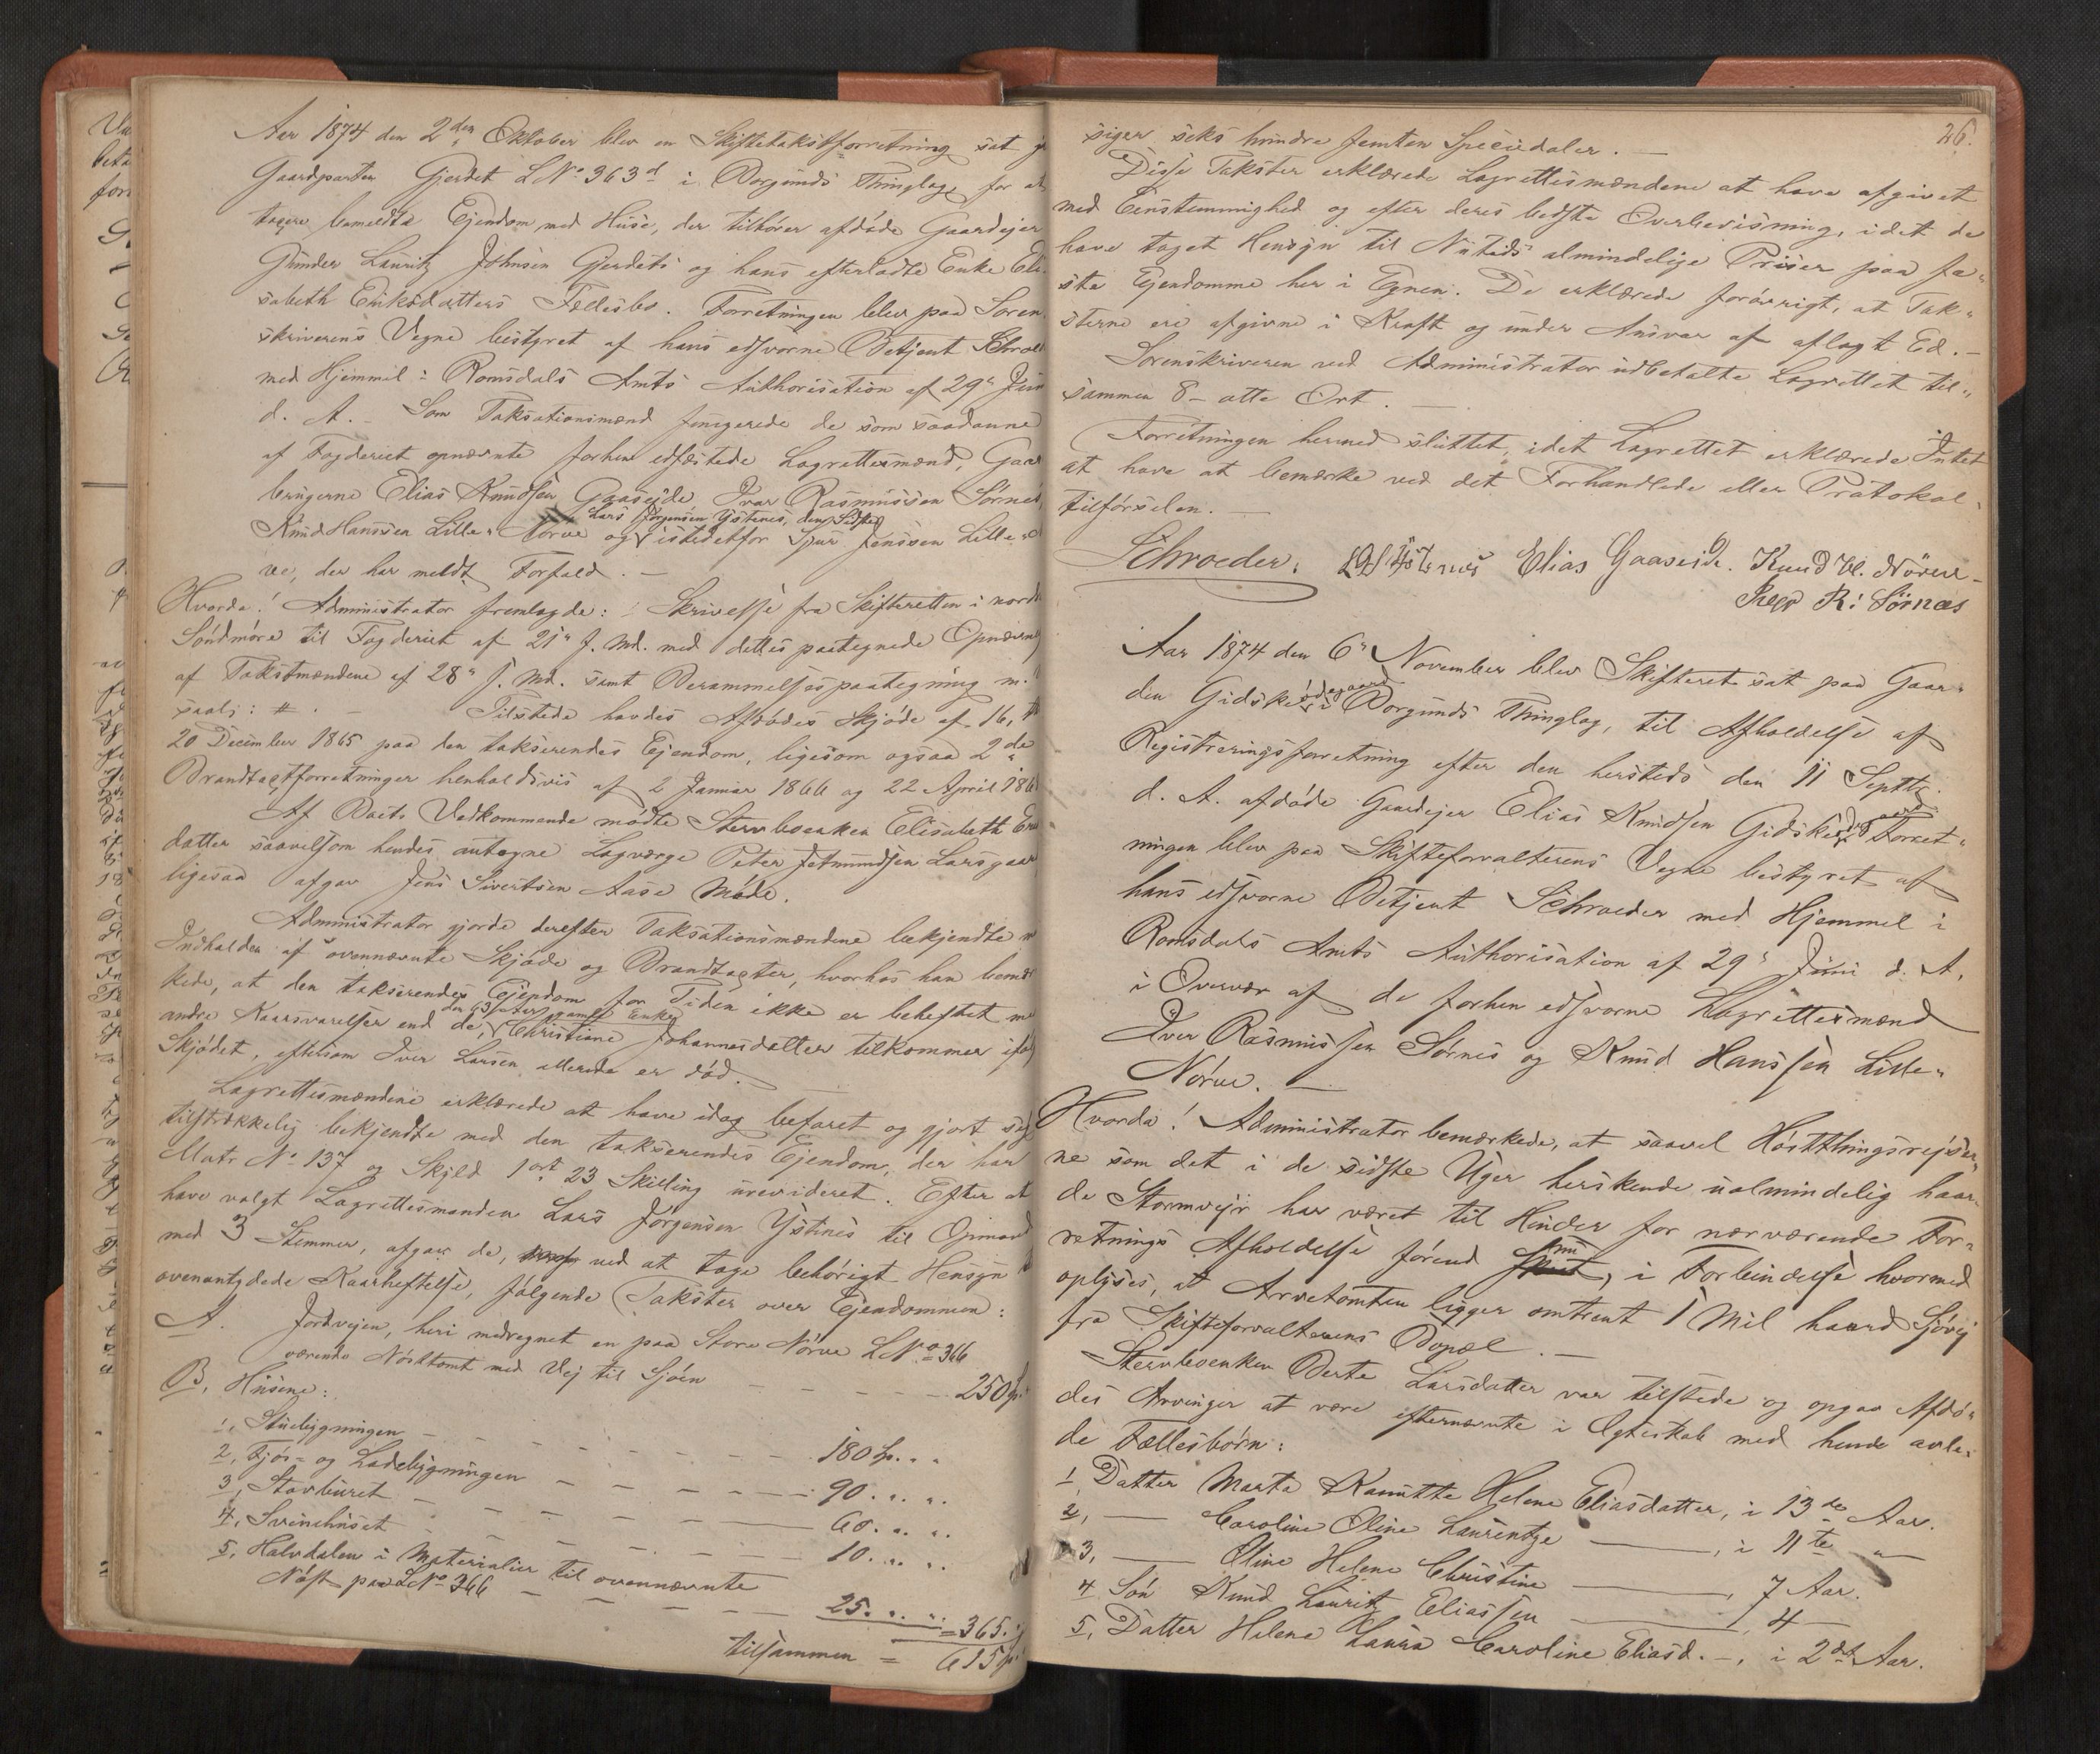 Aar 1874 den 2den Oktober blev en Skiftetakstforretning sat
Gaardparten Gjerdet LNo 363d i Borgunds Thinglag for at
taxere bemeldte Ejendom med Huse, der tilhörer afdöde Gaardejer
Gunder Lauritz Johnsen Gjerdets og hans efterladte Enke Eli-
sabeth Eriksdatters Fællesbo. Forretningen blev paa Soren
skriverens Vegne bestyret af hans edsvorne Betjent Schroed
med Hjemmel i Romsdals Amts Authorisation af 29de Juni
d. A. – Som Taksationsmænd fungerede de som saadanne
af Fogderiet opnævnte forhen edfæstede Lagrettesmænd, Gaar
brugerne Elias Knudsen Gaaseide, Ivar Rasmussen Sörnes,
Lars Jörgensen Ystenes, den Sidste
Knud Hanssen Lille-Nörve og istedetfor Sjur Jenssen Lille-
ve, der har meldt Forfald. –
Hvorda! Administrator fremlagde: Skrivelse fra Skifteretten i nordre
Söndmöre til Fogderiet af 21de f. Md. med dettes paategnede Opnævn
af Takstmændene af 28de f. Md. samt Berammelsespaategning m.
saalj: #. – Tilstede havdes Afdödes Skjöde af 16,
20 December 1865 paa den takserendes Ejendom, ligesom ogsaa 2de
Brandtaxtforretninger henholdsvis af 2 Januar 1866 og 22 April 186
Af Boets Vedkommende mödte Stervboenken Elisabeth Eriks
datter saavelsom hendes antagne Lagværge Peter Jetmundsen Larsgaar
ligesaa afgav Jens Sivertsen Aase Möde.
Administrator gjorde derefter Taksationsmændene bekjendte m
Indholden af ovennævnte Skjöde og Brandtaxter, hvorhos han bemær
kede, at den takserendes Ejendom for Tiden ikke er beheftet me
den 63 Aar gamle Enke
andre Kaarsvarelser end de, Christiane Johannesdatter tilkommer ifölg
Skjödet, eftersom Iver Larsen allerede er död. –
Lagrettesmændene erklærede at have idag befaret og gjort sig
tilstrækkelig bekjendte med den takserendes Ejendom, der har
Matr No 137 og Skyld 1 ort 23 Skilling urevideret. Efter at
have valgt Lagrettesmanden Lars Jörgensen Ystenes til Opmand
med 3 Stemmer, afgav de, ved at tage behörigt Hensyn t
ovenantydede Kaarheftelse, fölgende Takster over Ejendommen:
A. Jordvejen, heri medregnet en paa Store Nörve LNo 366
værende Nöstetomt med Vej til Sjöen – – – – – 250 Sp.
B. Husene:
1, Stuebygningen – – – – – – 180 Sp. „ „
2, Fjös- og Ladebygningen – – – – – 90. „ „
3, Stavburet – – – – – – 60. „ „
4, Svinehuset – – – – – – 10. „ „
5, Halvdelen i Materialier til ovennævnte
Nöst paa LNo 366 – – – – – 25. „ „ = 365.
tilsammen = 615 Sp.
26.
siger seks hundre femten Speciedaler. –
Disse Takster erklærede Lagrettesmændene at have afgivet
med Eenstemmighed og efter deres bedste Overbevisning, idet de
have taget Hensyn til Nutids almindelige Priser paa fa-
ste Ejendomme her i Egnen. De erklærede forövrigt, at Tak-
sterne ere afgivne i Kraft og under Ansvar af aflagt Ed. –
Sorenskriveren ved Administrator udbetalte Lagrettet til-
sammen 8 – otte Ort. –
Forretningen hermed sluttet, idet Lagrettet erklærede Intet
at have at bemærke ved det Forhandlede eller Protokol-
tilförselen. –
Schroeder. LJYstenes Elias Gaaseide. Knud H. Nörve –
Iver R: Sörnes
Aar 1874 den 6te November blev Skifteret sat paa Gaar-
den Gidske ödegaard i Borgunds Thinglag, til Afholdelse af
Registreringsforretning efter den hersteds den 11 Septbr.
d. A. afdöde Gaardejer Elias Knudsen Gidskeödegaard. Forret-
ningen blev paa Skifteforvalterens Vegne bestyret af
hans edsvorne Betjent Schroeder med Hjemmel i
Romsdals Amts Authorisation af 29de Juni d. A.
i Overvær af de forhen edsvorne Lagrettesmænd
Iver Rasmussen Sörnes og Knud Hanssen Lille-
Nörve. –
Hvorda! Administrator bemærkede, at saavel Höstthingsrejser-
ne som det i de sidste Uger herskende ualmindelig haar-
de Stormvejr har været til Hinder for nærværende For-
retnings Afholdelse förend nu, i Forbindelse hvormed
oplyses, at Arvetomten ligger omtrent 1 Mil haard Sjövej
fra Skifteforvalterens Bopæl. –
Stervboenken Berte Larsdatter var tilstede og opgav Afdö-
des Arvinger at være efternævnte i Ægteskab med hende avle-
de Fællesbörn:
1, Datter Marte Knuutte Helene Eliasdatter, i 13de Aar.
2, — Caroline Oline Laurentze —, i 11te „
3, — Oline Helene Christine —, 7 Aar.
4 Sön Knud Lauritz Eliassen —, 4 —
5, Datter Helene Laura Caroline Eliasd. –, i 2det Aar.